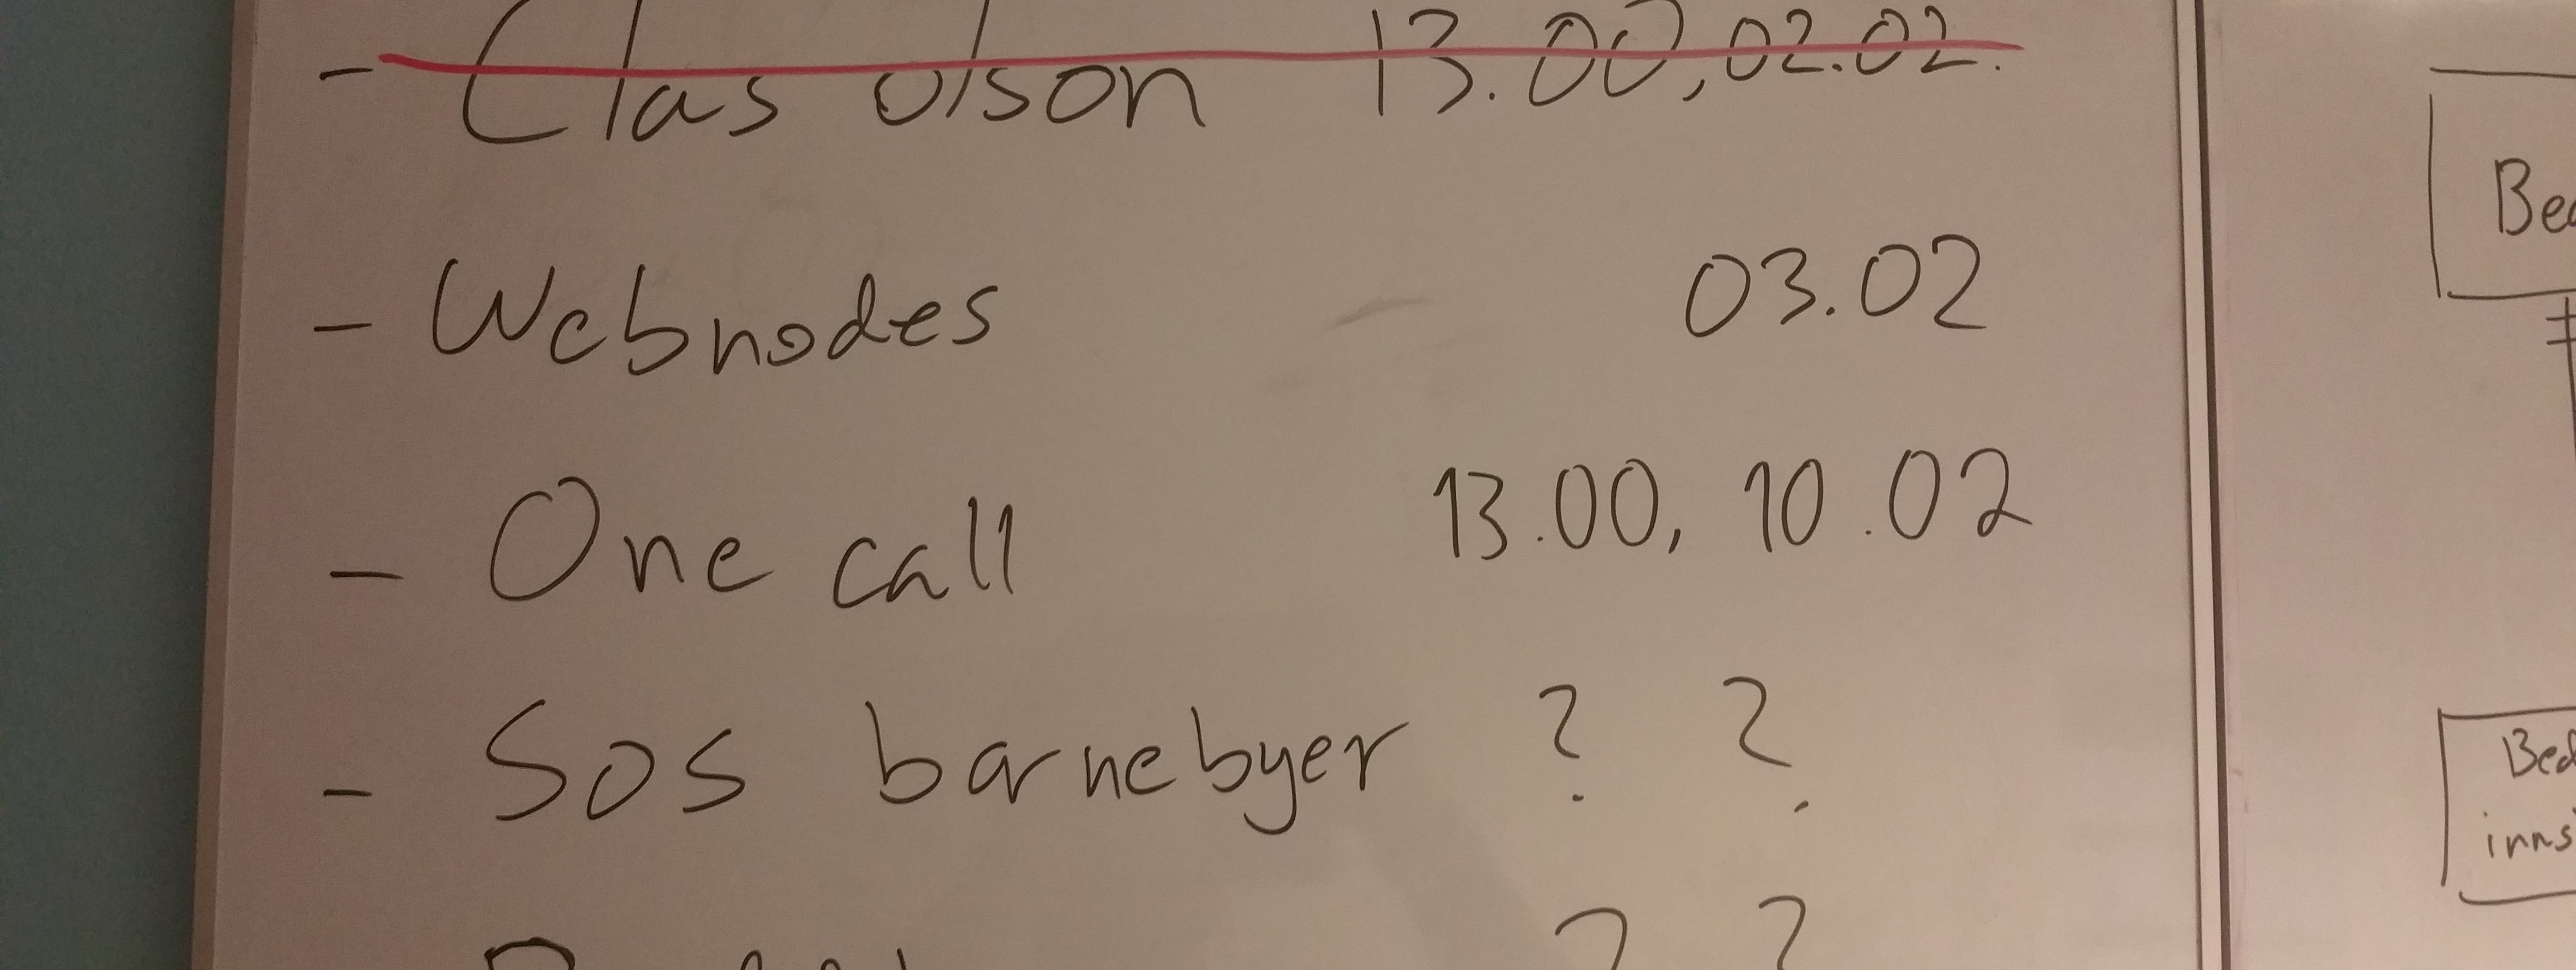 - Clas olson 13.00, 02.02.
- Webnodes 03.02
- One call 13.00, 10.02
- Sos barnebyer ? ?
? ?